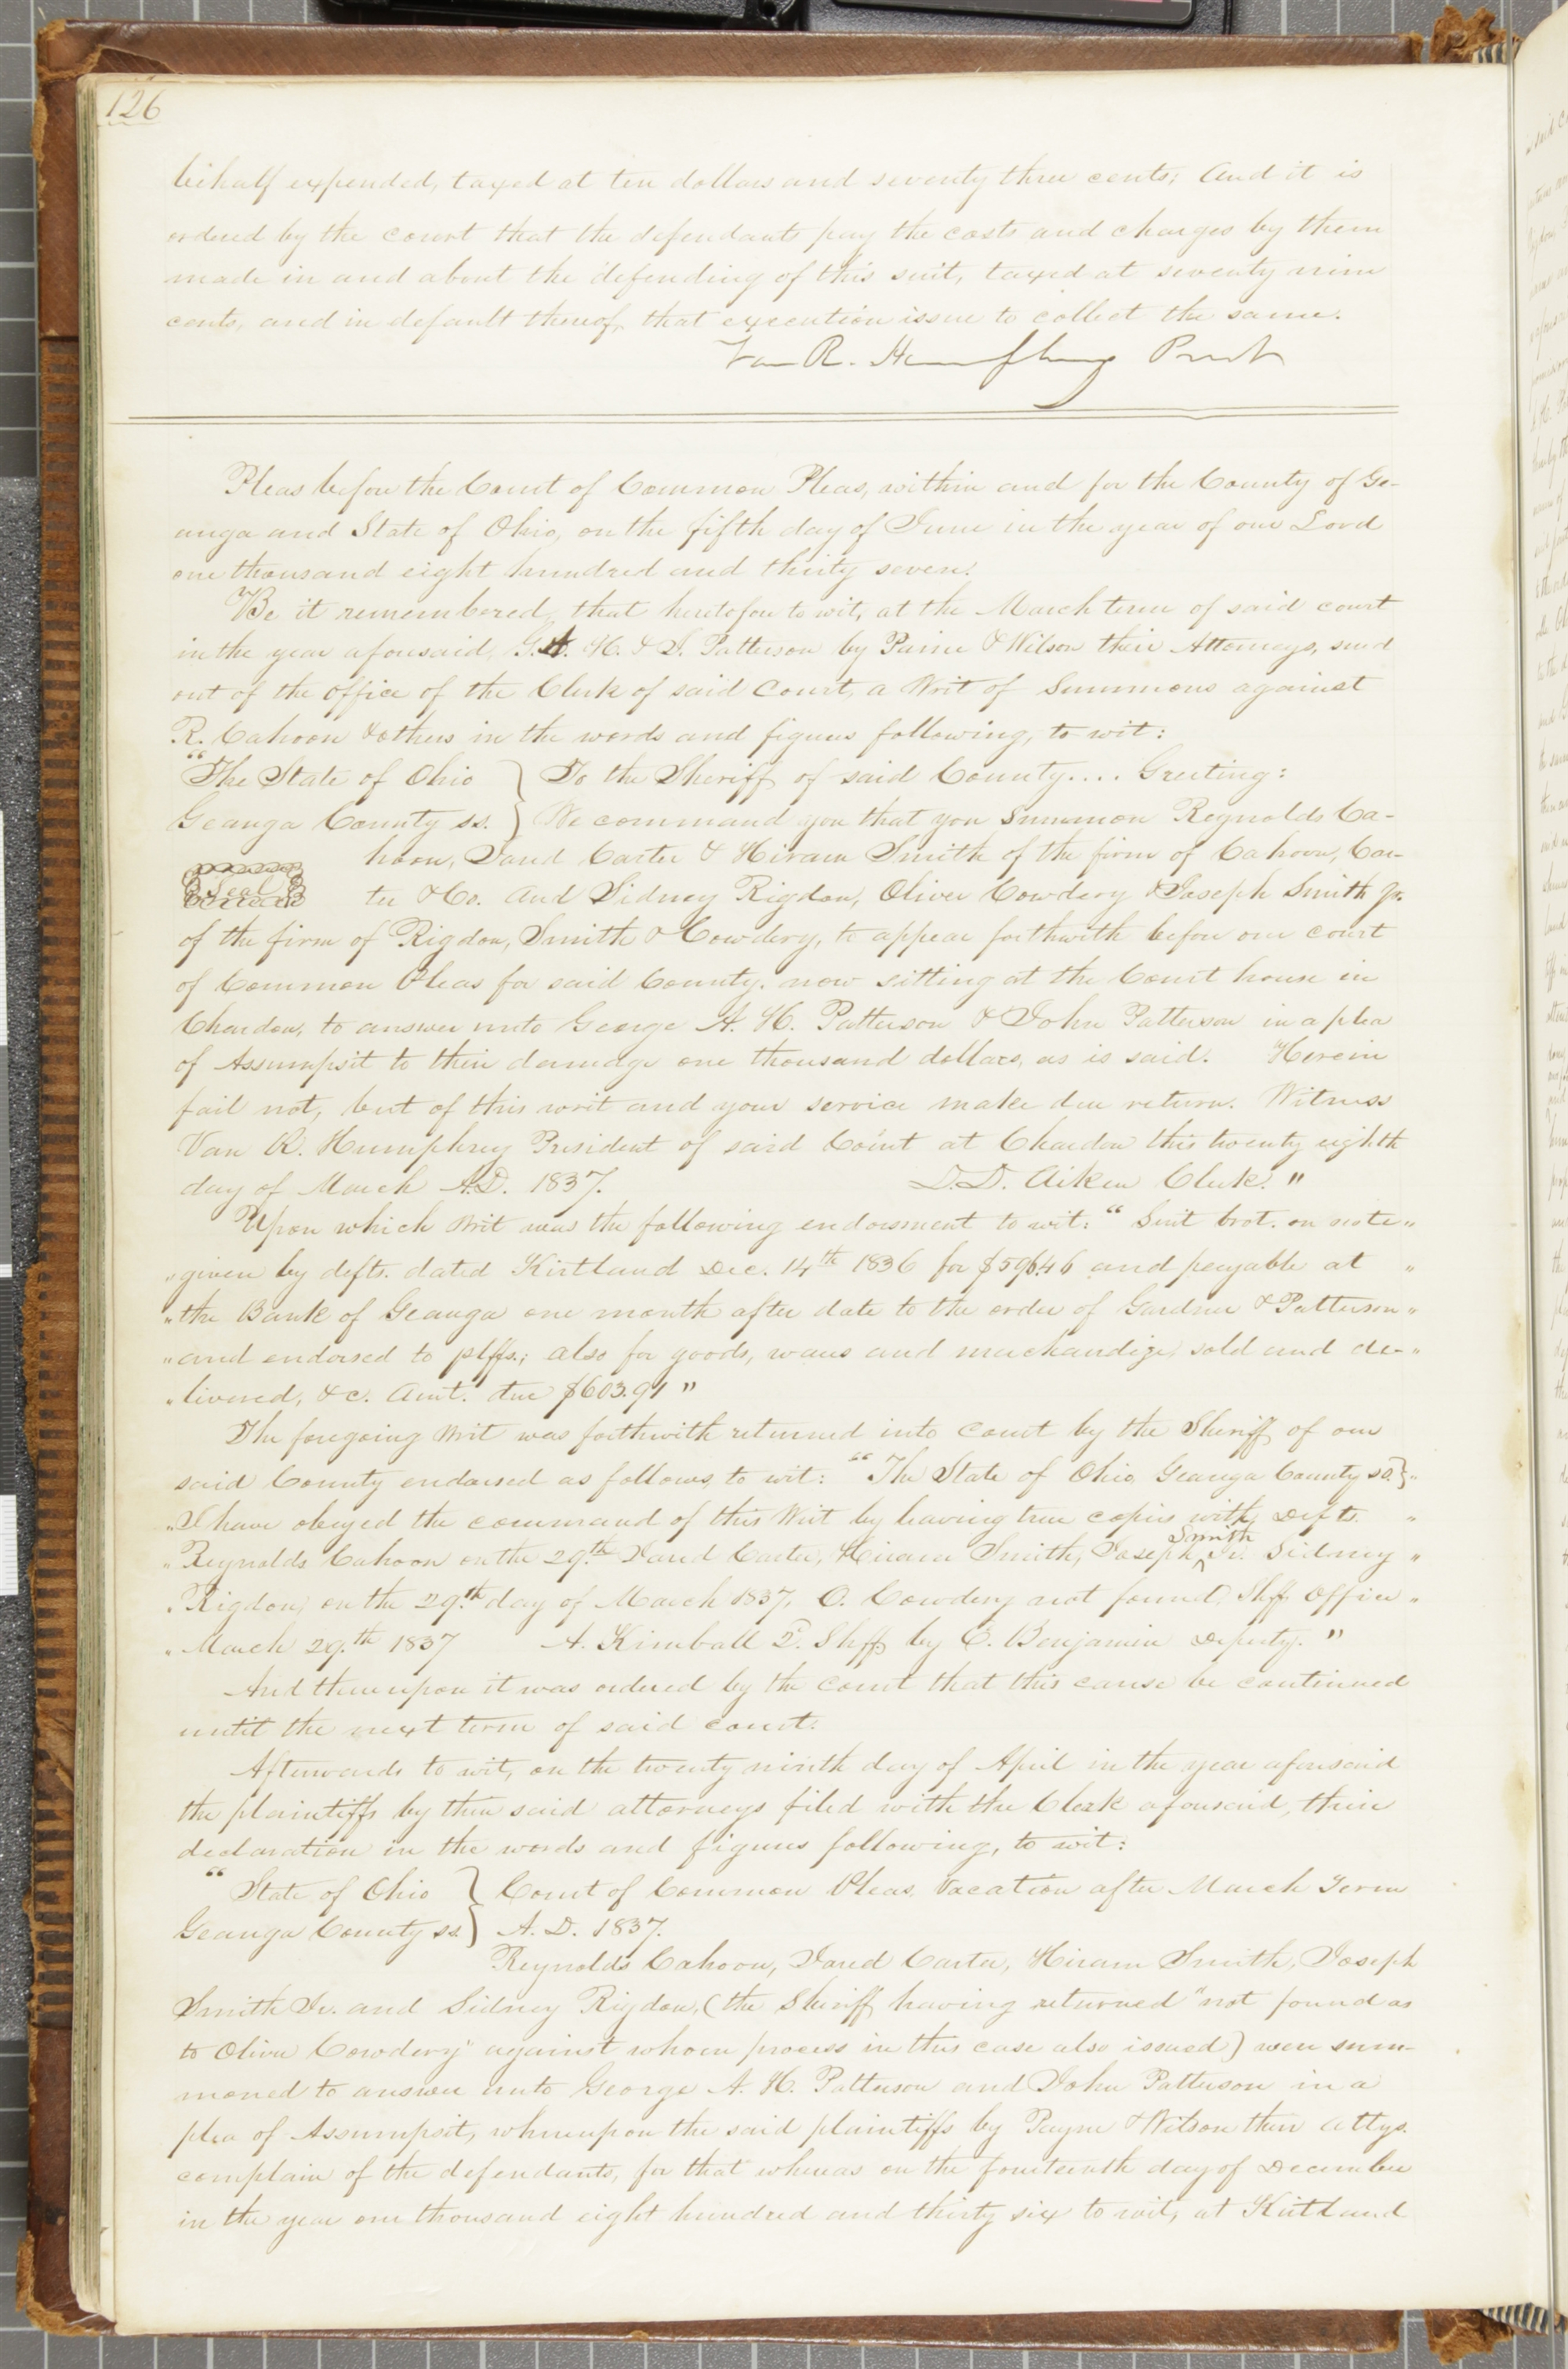 126
behalf expended, taxed at ten dollars and seventy three cents; And it is
ordered by the court that the defendants pay the costs and charges by them
made in and about the defending of this suit, taxed at seventy nine
cents, and in default thereof, that execution issue to collect the same.
Van R. Humphrey Presdt
Pleas before the Court of Common Pleas, within and for the County of Ge-
auga and State of Ohio, on the fifth day of June in the year of our Lord
one thousand eight hundred and thirty seven.
Be it remembered, that heretofore to wit, at the March term of said court
in the year aforesaid, G. A. H. & J. Patterson by Paine & Wilson their Attorneys, sued
out of the office of the Clerk of said Court, a Writ of Summons against
R. Cahoon & others in the words and figures following, to wit:
"The State of Ohio } To the Sheriff of said County.... Greeting:
Geauga County ss. } We command you that you Summon Reynolds Ca-
hoon, Jared Carter & Hiram Smith of the firm of Cahoon, Car-
Seal ter & Co. and Sidney Rigdon, Oliver Cowdery & Joseph Smith Jr.
of the firm of Rigdon, Smith & Cowdery, to appear forthwith before our court
of Common Pleas for said County. now sitting at the Court house in
Chardon, to answer unto George A. H. Patterson & John Patterson in a plea
of Assumpsit to their damage one thousand dollars, as is said. Herein
fail not, but of this writ and your service make due return. Witness
Van R. Humphrey President of said Court at Chardon this twenty eighth
day of March A.D. 1837. D. D. Aiken Clerk."
Upon which Writ was the following endorsment to wit: "Suit brot. on note "
" given by defts. dated Kirtland Dec. 14th 1836 for $596.46 and payable at "
" the Bank of Geauga one month after date to the order of Gardner & Patterson "
" and endorsed to plffs.; also for goods, wares and merchandize sold and de- "
" livered, &c. Amt. due $603.91 "
The foregoing Writ was forthwith returned into Court by the Sheriff of our
said County endorsed as follows to wit: "The State of Ohio Geauga County ss.} "
" I have obeyed the command of this Writ by leaving true copies with Defts. "
" Reynolds Cahoon on the 29.th Jared Carter, Hiram Smith, Joseph Smith Jr. Sidney "
" Rigdon, on the 29.th day of March 1837. O. Cowdery not found. Shff. Office "
" March 29.th 1837 A. Kimball 2d. Shff by C. Benjamin Deputy. "
And thereupon it was ordered by the Court that this cause be continued
until the next term of said court.
Afterwards to wit, on the twenty ninth day of April in the year aforesaid
the plaintiffs by their said attorneys filed with the Clerk aforesaid, their
declaration in the words and figures following, to wit:
"State of Ohio } Court of Common Pleas, Vacation after March Term
Geauga County ss } A. D. 1837.
Reynolds Cahoon, Jared Carter, Hiram Smith, Joseph
Smith Jr. and Sidney Rigdon, (the Sheriff having returned "not found as
to Oliver Cowdery" against whom process in this case also issued) were sum-
moned to answer unto George A. H. Patterson and John Patterson in a
plea of Assumpsit, whereupon the said plaintiffs by Payne & Wilson their Attys.
complain of the defendants, for that whereas on the fourteenth day of December
in the year one thousand eight hundred and thirty six to wit, at Kirtland